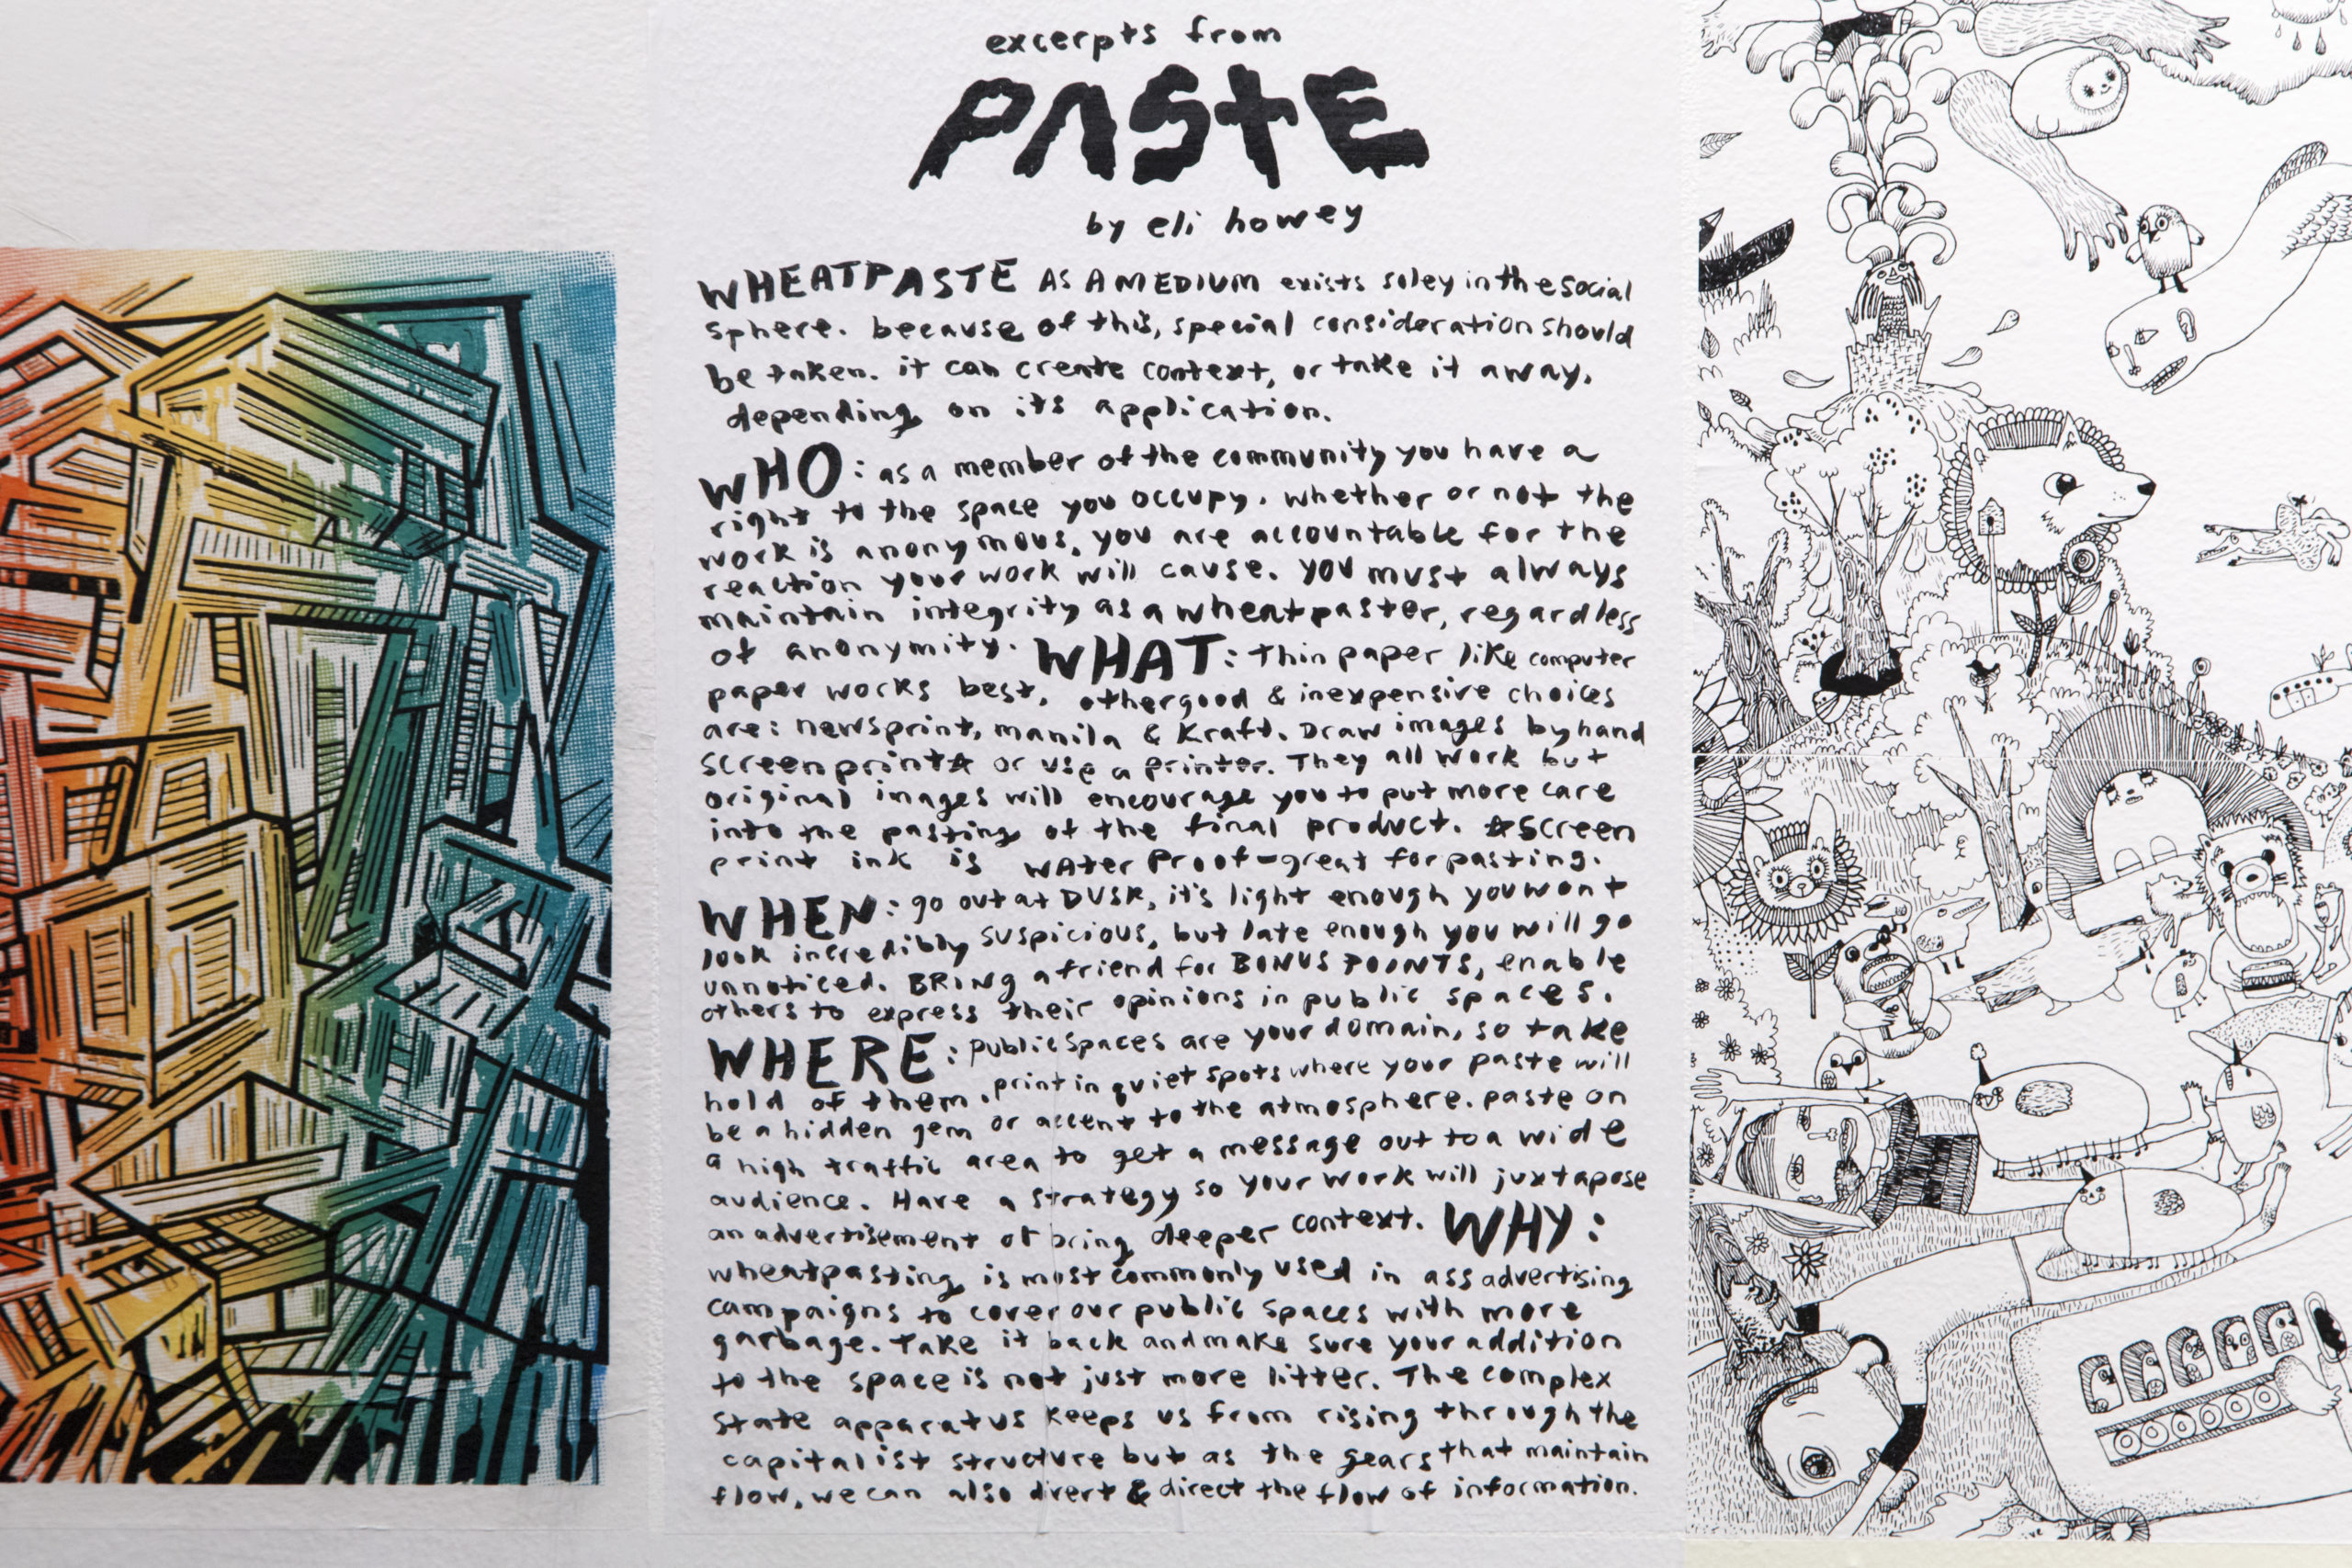 excerpts from
PASTE
by eli howey
WHEATPASTE AS A MEDIUM exists soley in the social
sphere. because of this, special consideration should
be taken. it can create context, or take it away,
depending on its application.
WHO: as a member of the community you have a
right to the space you occupy. whether or not the
work is anonymous, you are accountable for the
reaction your work will cause. you must always
maintain integrity as a wheatpaster, regardless
of anonymity. WHAT: thin paper like computer
paper works best, other good & inexpensive choices
are: newsprint, manila & kraft. Draw images by hand
screenprint☆ or use a printer. They all work but
original images will encourage you to put more care
into the pasting of the final product. ☆screen
print ink is WATer Proof-great for pasting.
WHEN: go out at DUSK, it's light enough you wont
look incredibly suspicious, but late enough you will go
unnoticed. BRING a friend for BONUS POINTS, enable
others to express their opinions in public spaces.
WHERE: public spaces are your domain, so take
hold of them. print in quiet spots where your paste will
be a hidden gem or accent to the atmosphere. paste on
a high traffic area to get a message out to a wide
audience. Have a strategy so your work will juxtapose
an advertisement or bring deeper context. WHY:
wheatpasting is most commonly used in ass advertising
campaigns to cover our public spaces with more
garbage. Take it back and make sure your addition
to the space is not just more litter. The complex
state apparatus keeps us from rising through the
capitalist structure but as the gears that maintain
flow, we can also divert & direct the flow of information.